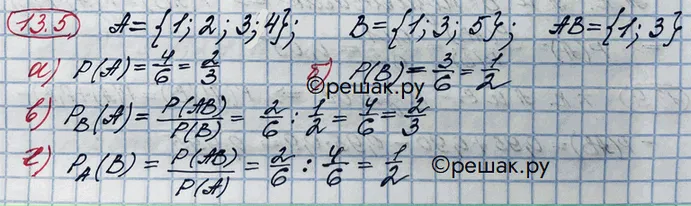 13.5 A = {1; 2; 3; 4}; B = {1; 3; 5}; AB = {1; 3}
а) P(A) = 4/6 = 2/3 б) P(B) = 3/6 = 1/2
©решак.ру
в) P_B(A) = P(AB)/P(B) = 2/6 : 1/2 = 4/6 = 2/3
г) P_A(B) = P(AB)/P(A) = 2/6 : 4/6 = 1/2 ©решак.ру